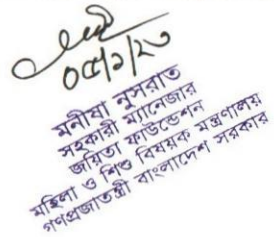 ০৫/২/২৩
মনীষা নুসরাত
সহকারী ম্যানেজার
জয়িতা ফাউন্ডেশন
মহিলা ও শিশু বিষয়ক মন্ত্রণালয়
গণপ্রজাতন্ত্রী বাংলাদেশ সরকার